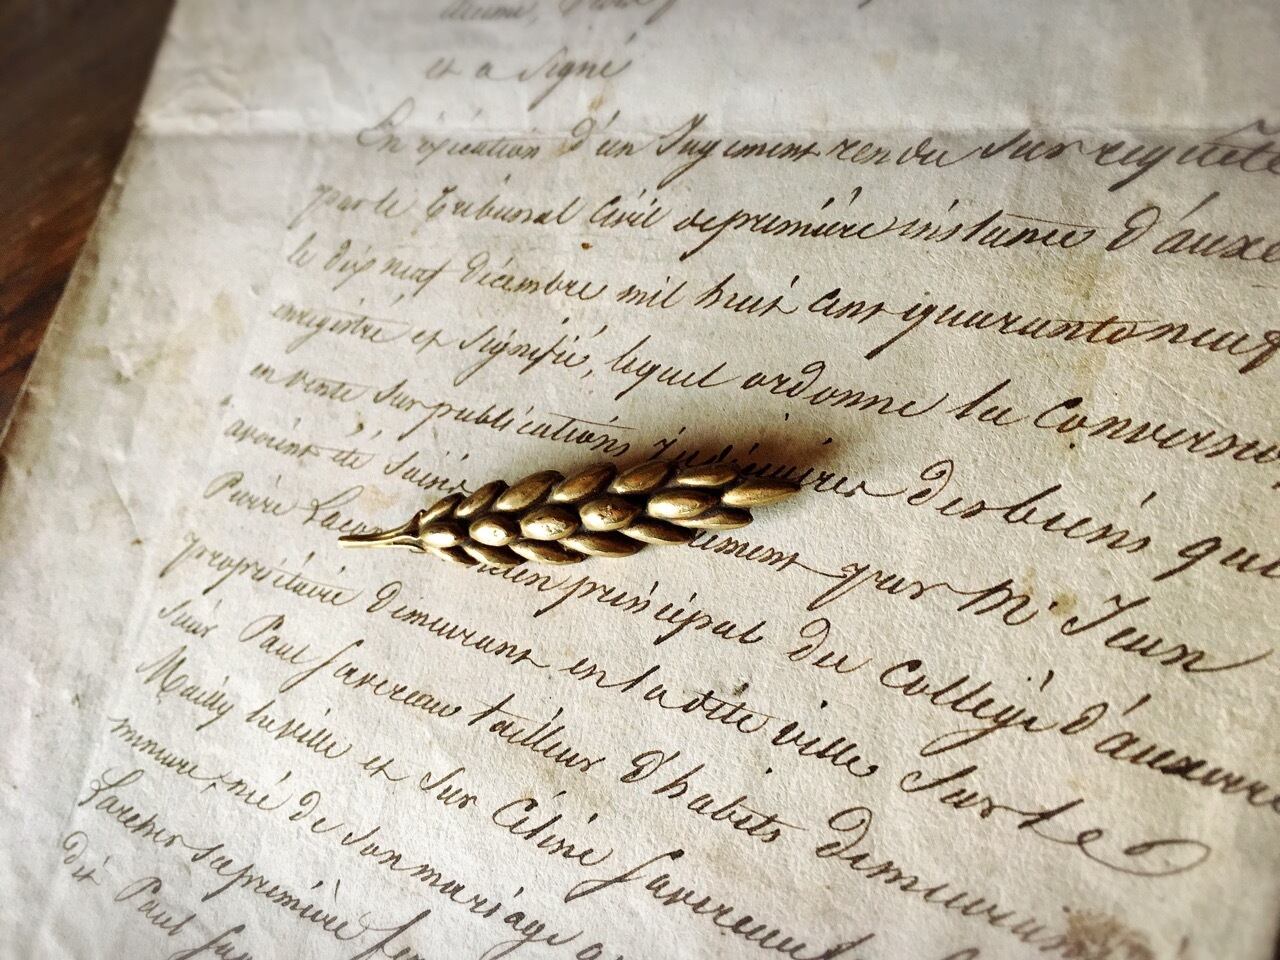 et a signé
En exécution d'un Jugement rendu sur requête
par le Tribunal Civil de première instance d'auxe
le dix neuf décembre mil huit cent quarante neuf
enregistré et signifié, lequel ordonne la conversio
en vente sur publications judiciaires des biens qui
avaient été saisis ement que sur Mr Jean
Pierre principal du Collège d'auxerre
propriétaire demeurant en la dite ville sur le
sieur Paul tailleur d'habits demeurant
Mailly la ville et sur Céline
mineure née de son mariage a
sa première fe
dit Paul